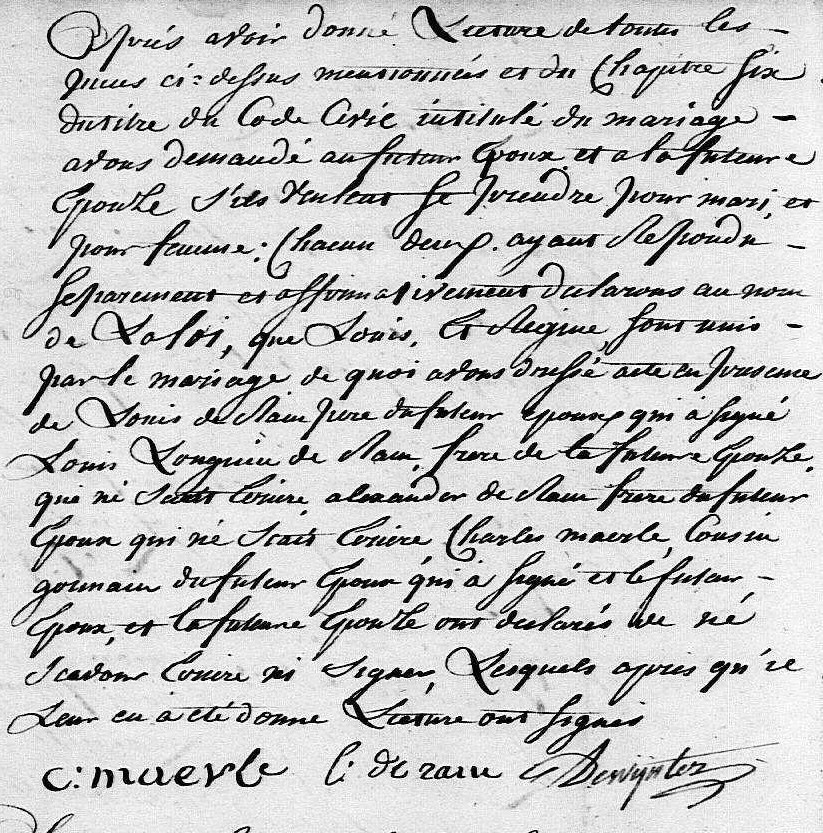 Après avoir donné Lecture de toutes les -
pieces ci=dessus mentionnées et du Chapitre Six
du titre du Code Civic intitulé du mariage -
avons demandé au futur Epoux et a la future
Epouze s'ils veulent Se prendre pour mari, et
pour femme; Chacun deux ayant Repondu -
Separement et affirmativement declarons au nom
de La loi, que Louis, Et Regine, sont unis -
par le mariage de quoi avons dressé acte en presence
de Louis de Ram pere du futur epoux qui à signé
Louis de Ram, frere de la future Epouze,
que né Scait Ecrire, alexander de Ram frere du futur
Epoux qui né Scait Ecrire, Charles maerle, Cousin
germain du futur Epoux qui à signé et le futur -
Epoux, et la future Epouze ont declarés de né
Scavoir Ecrire ni Signer, Lesquels apres qu'il
Leur en à eté donne Lecture ont signés
c: maerle l: de ram Dewynter